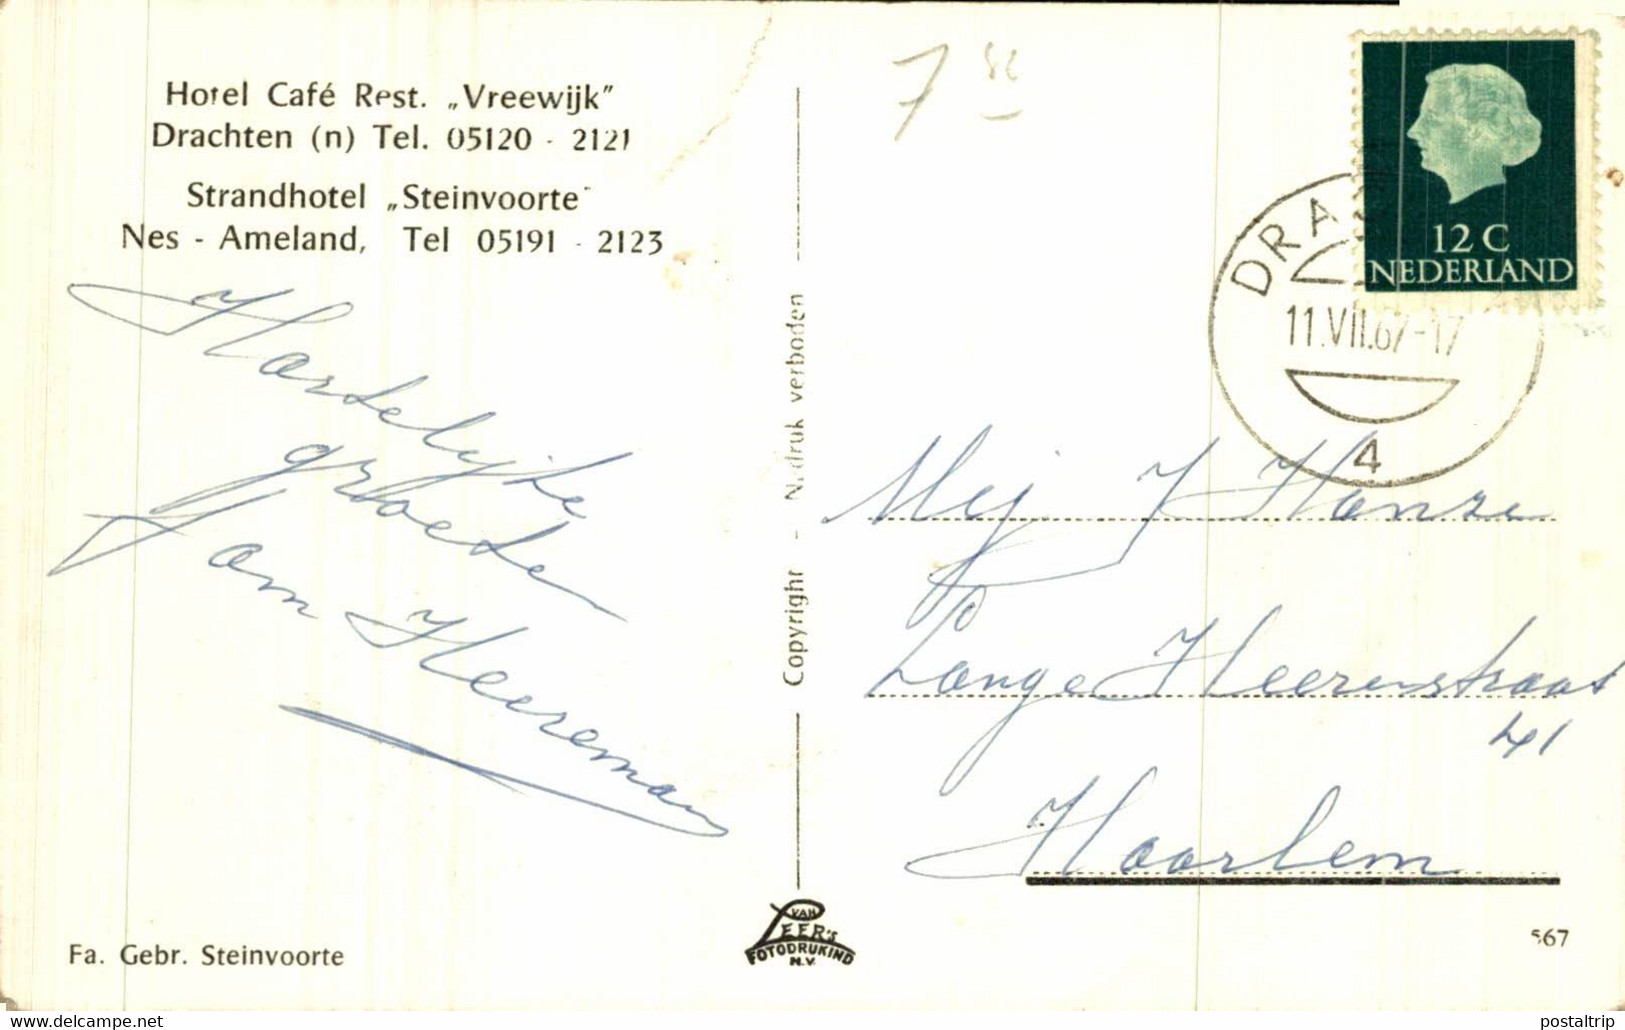 Hotel Café Rest. „Vreewijk"
Drachten (n) Tel. 05120 - 2121
Strandhotel „Steinvoorte"
Nes - Ameland, Tel 05191 - 2123
Hartelijke
groeten
Tom Heereman
Fa. Gebr. Steinvoorte
Copyright - Nadruk verboden
VAN
LEER's
FOTODRUKIND
N.V.
7
12 C
NEDERLAND
DRA
11.VII.67-17
4
Mej J Hanse
Lange Heerenstraat
41
Haarlem
567
www.delcampe.net
postaltrip